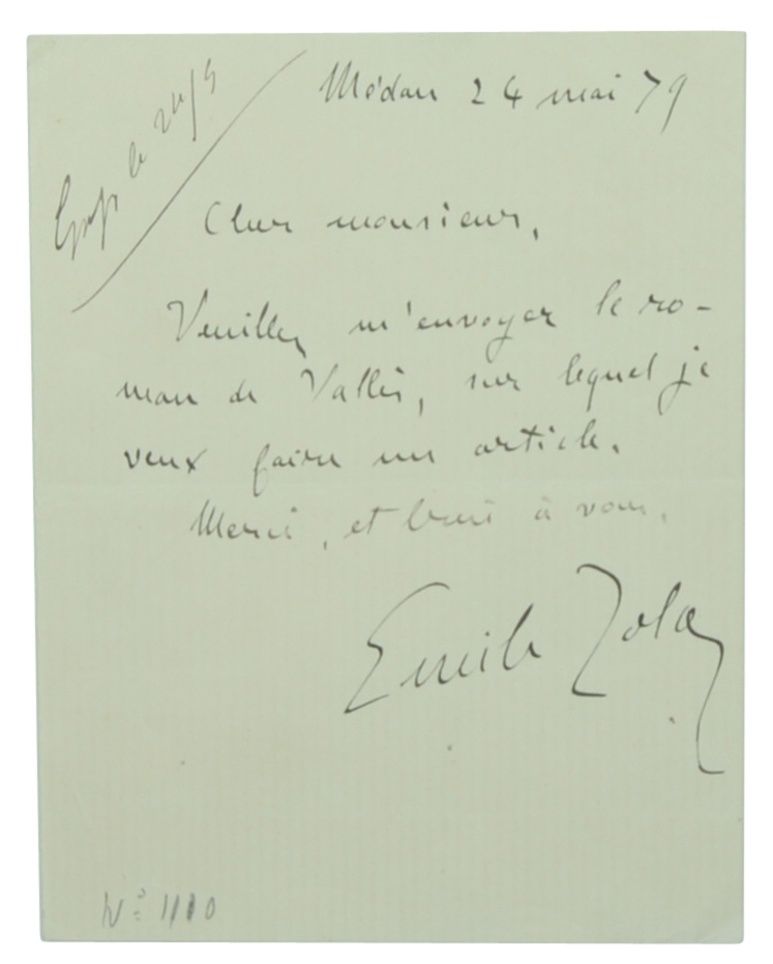 Médan 24 mai 79
le 24/5
Cher monsieur,
Veuillez m'envoyer le ro-
man de Vallès, sur lequel je
veux faire un article.
Merci, et bien à vous.
Emile Zola
No 1110